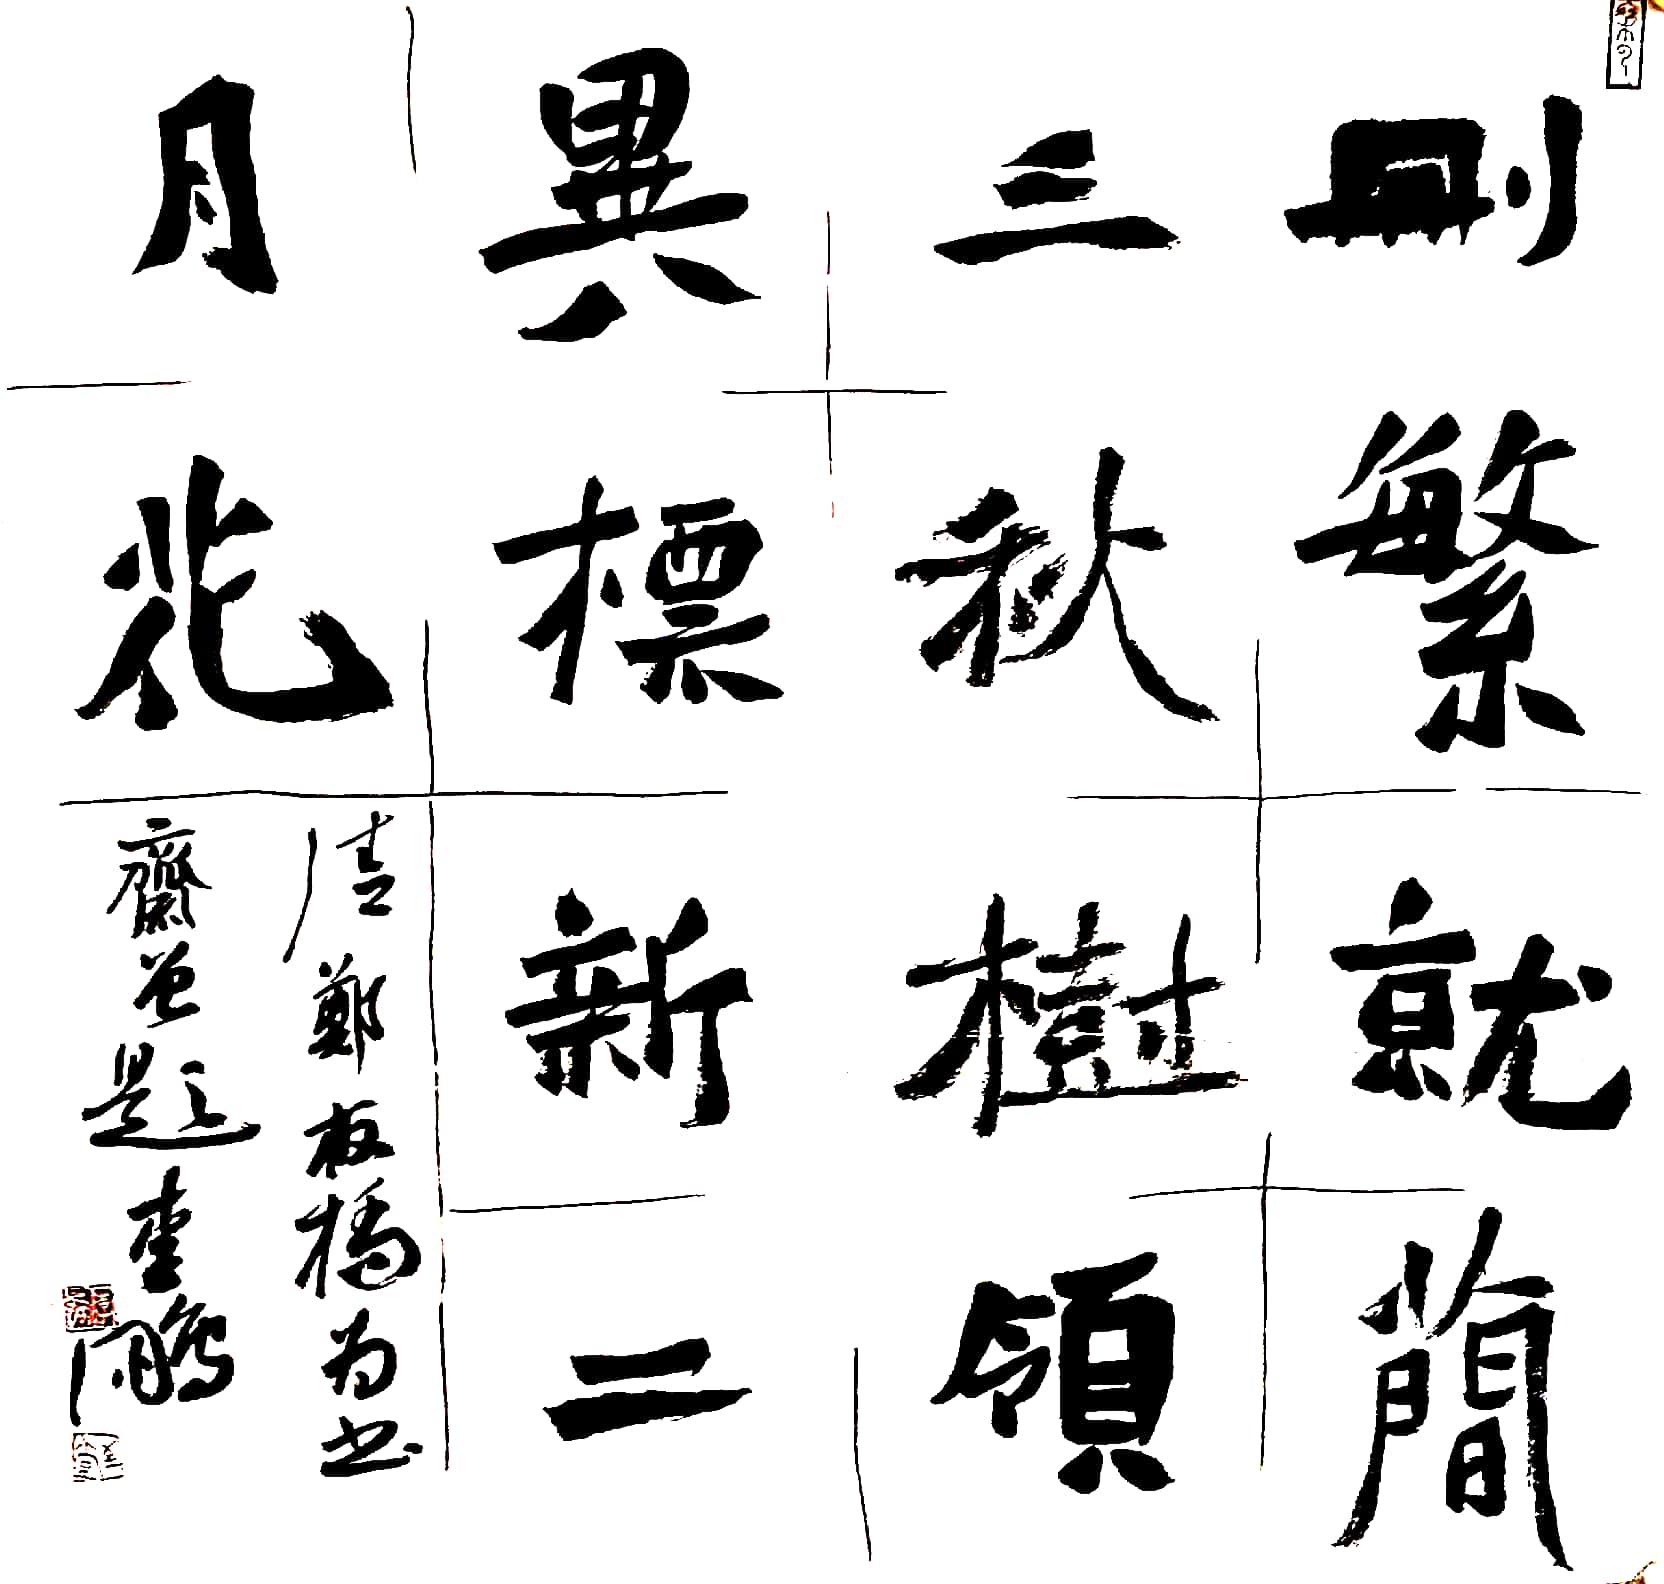 刪繁就簡
三秋樹領
異標新二
月花
清鄭板橋为书
齋曾題鵬